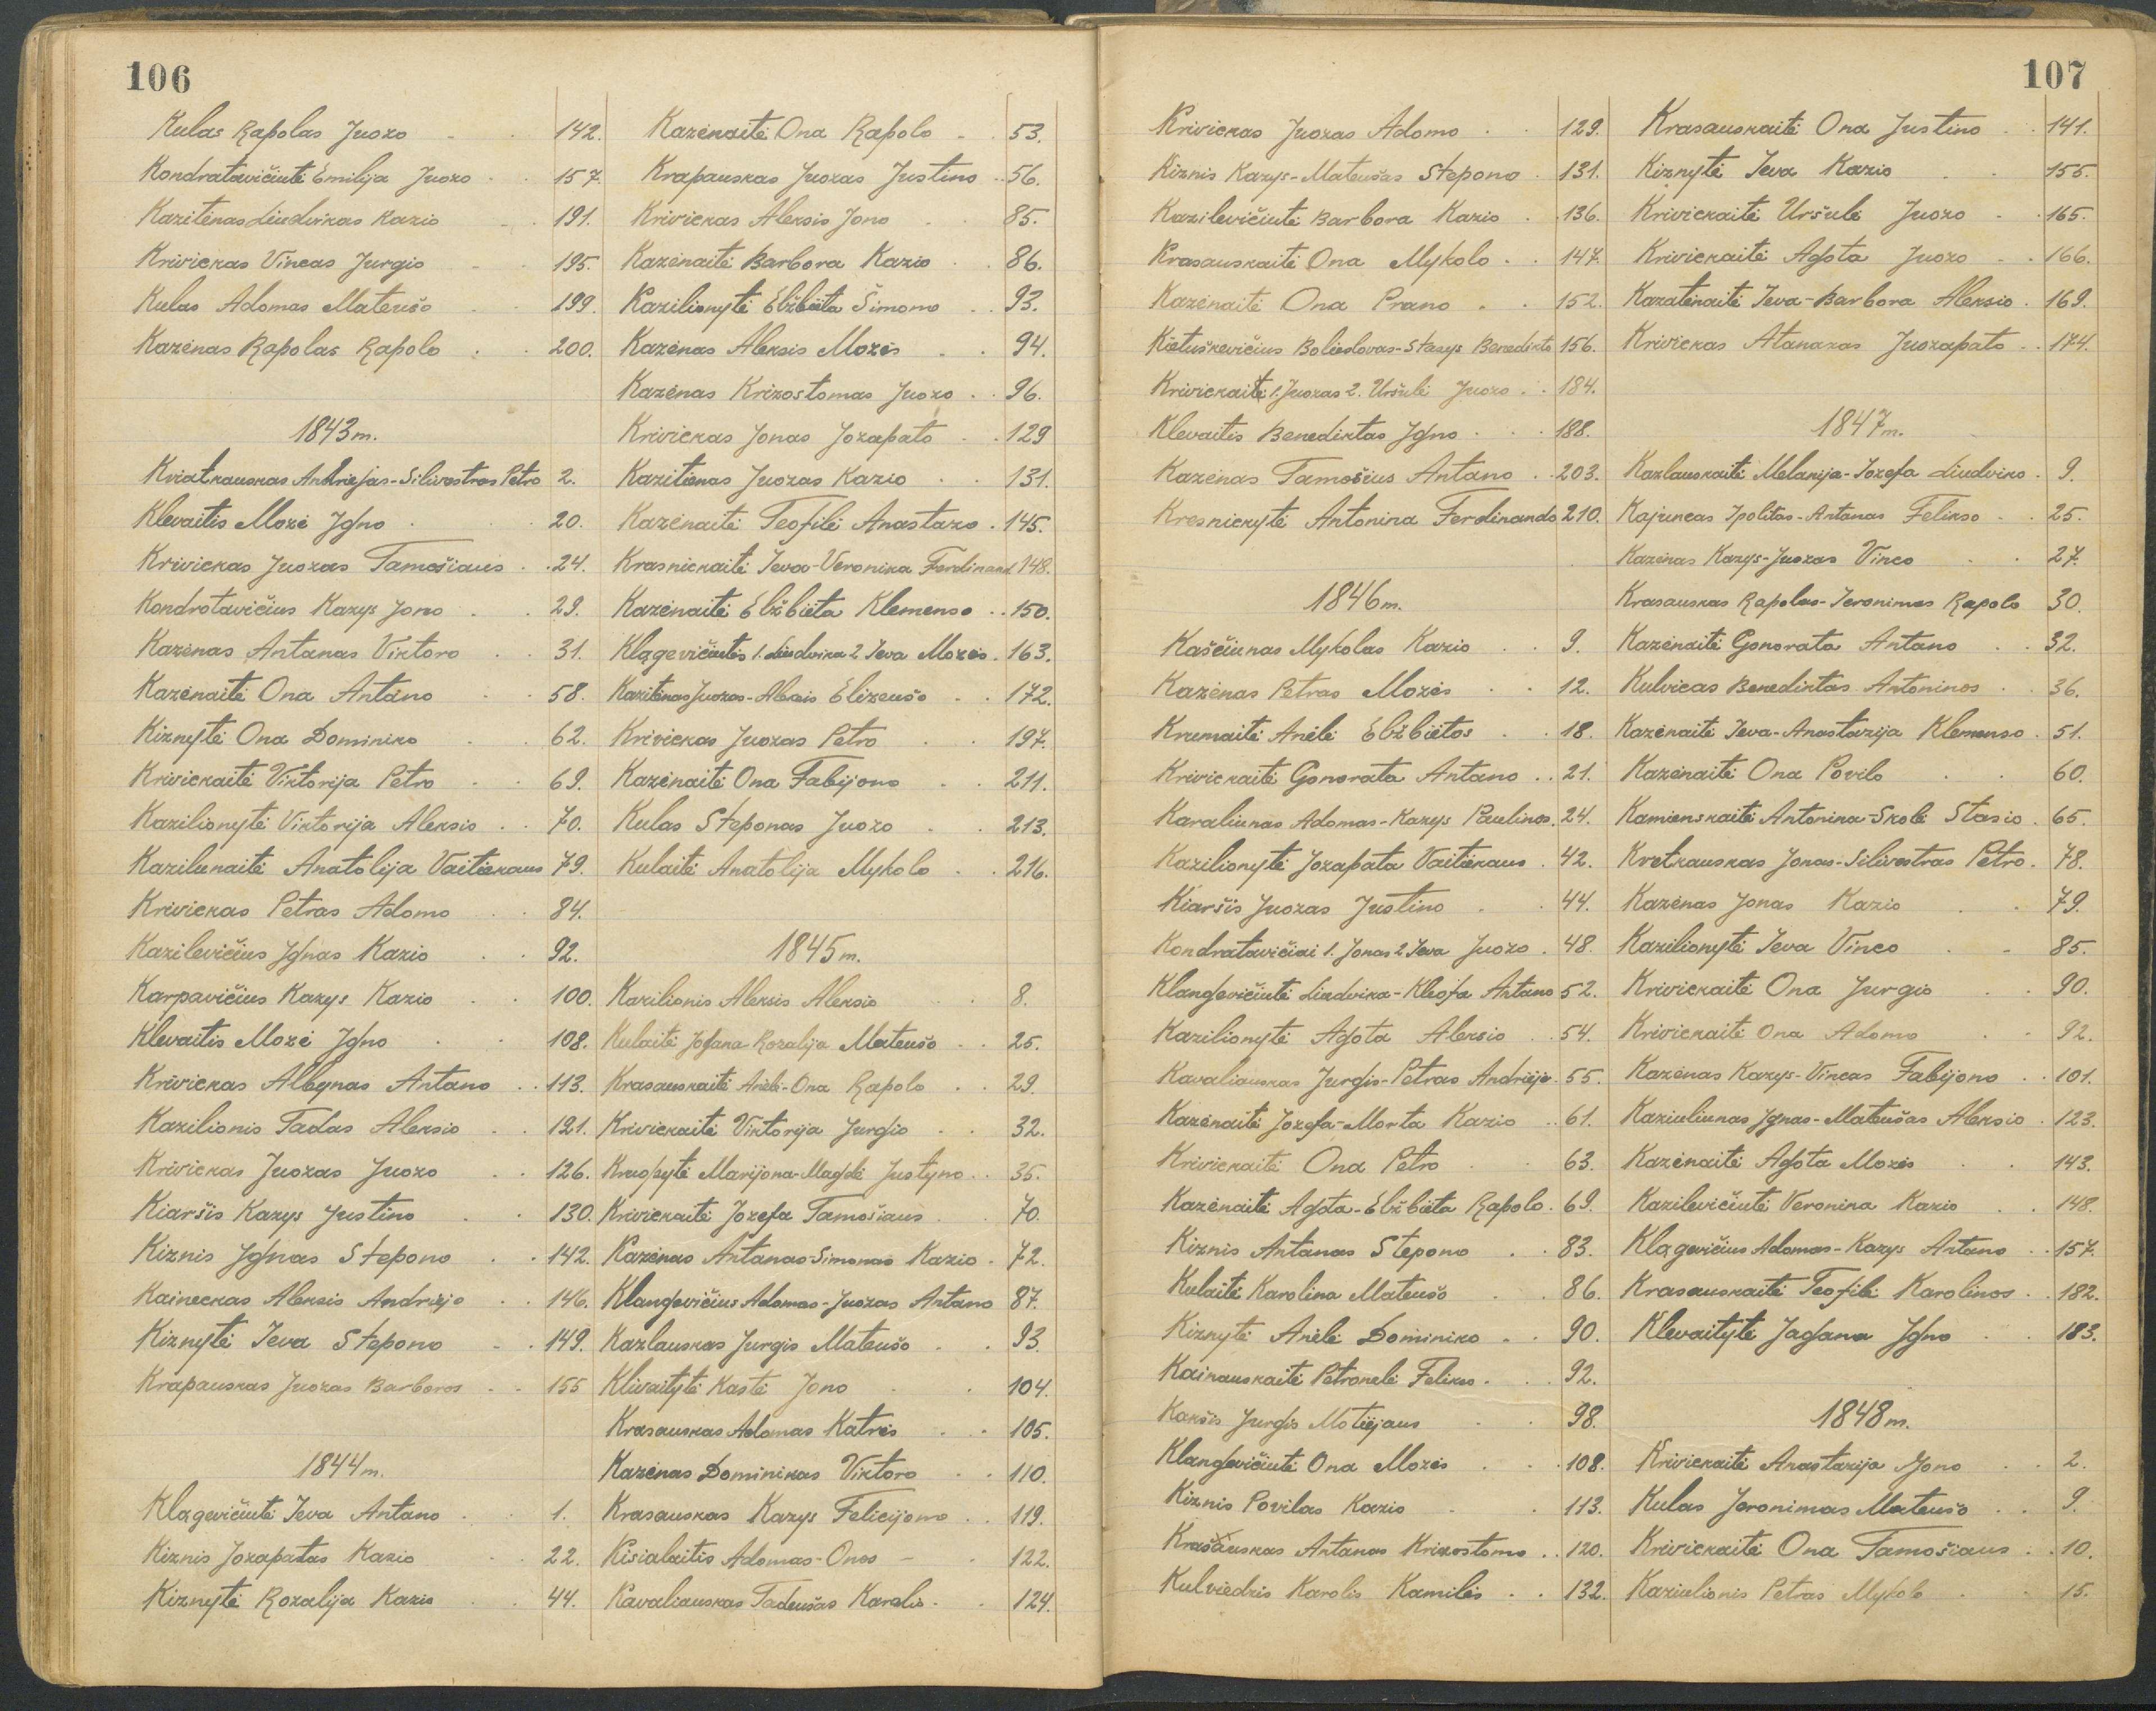 106
Kulas Rapolas Juozo - 142.
Kondratavičiutė Emilija Juozo 157.
Kazitėnas Liudvikas Kazio 191.
Krivickas Vincas Jurgio 195.
Kulas Adomas Mateušo 199.
Kazėnas Rapolas Rapolo 200.
1843 m.
Kviatkauskas Andriejas-Silivestras Petro 2.
Klevaitis Mozė Igno 20.
Krivickas Juozas Tamošiaus 24.
Kondrotavičius Kazys Jono 29.
Kazėnas Antanas Viktoro 31.
Kazėnaitė Ona Antano 58.
Kiznytė Ona Dominiko 62.
Krivickaitė Viktorija Petro 69.
Kazilionytė Viktorija Aleksio 70.
Kazilunaitė Anatolija Vaitiekaus 79.
Krivickas Petras Adomo 84.
Kazilevičius Ignas Kazio 92.
Karpavičius Kazys Kazio 100.
Klevaitis Mozė Igno 108.
Krivickas Albynas Antano 113.
Kazilionis Tadas Aleksio 121.
Krivickas Juozas Juozo 126.
Kiaršis Kazys Justino 130.
Kiznis Ignas Stepono 142.
Kaineckas Aleksis Andriejo 146.
Kiznytė Ieva Stepono 149.
Krapauskas Juozas Barboros 155
1844 m.
Klagevičiutė Ieva Antano 1.
Kiznis Jozapatas Kazio 22.
Kiznytė Rozalija Kazio 44.
Kazėnaitė Ona Rapolo 53.
Krapauskas Juozas Justino 56.
Krivickas Aleksis Jono 85.
Kazėnaitė Barbora Kazio 86.
Kazilionytė Elžbieta Šimono 93.
Kazėnas Aleksis Mozės 94.
Kazėnas Krizostomas Juozo 96.
Krivickas Jonas Jozapato 129
Kazitėnas Juozas Kazio 131.
Kazėnaitė Teofilė Anastazo 145.
Krasnickaitė Ieva-Veronika Ferdinand 148.
Kazėnaitė Elžbieta Klemenso 150.
Klagevičiutės 1. Liudvika 2 Ieva Mozės 163.
Kazitėnas Juozas-Aleksis Elizeušo 172.
Krivickas Juozas Petro 197.
Kazėnaitė Ona Fabijono 211.
Kulas Steponas Juozo 213.
Kulaitė Anatolija Mykolo 216.
1845 m.
Kazilionis Aleksis Aleksio 8.
Kulaitė Jogana Rozalija Mateušo 25.
Krasauskaitė Anėlė-Ona Rapolo 29.
Krivickaitė Viktorija Jurgio 32.
Kruopytė Marijona-Magdė Justyno 35.
Krivickaitė Jozefa Tamošiaus 70.
Kazėnas Antanas-Simonas Kazio 72.
Klangevičius Adomas-Juozas Antano 87.
Kazlauskas Jurgis Mateušo 93.
Klivaitytė Kastė Jono 104.
Krasauskas Adomas Katrės 105.
Kazėnas Dominikas Viktoro 110.
Krasauskas Kazys Felicijono 119.
Kisialaitis Adomas-Onos - 122.
Kavaliauskas Tadeušas Karolio 124.
107
Krivickas Juozas Adomo 129.
Kiznis Kazys-Mateušas Stepono 131.
Kazilevičiutė Barbora Kazio 136.
Krasauskaitė Ona Mykolo 147.
Kazėnaitė Ona Prano 152.
Kietuškevičius Bolieslovas-Stasys Benedikto 156.
Krivickaitė 1. Juozas 2. Uršulė Juozo 184.
Klevaitis Benediktas Igno 188.
Kazėnas Tamošius Antano 203.
Kresnickytė Antonina Ferdinando 210.
1846 m.
Kaščiunas Mykolas Kazio 9.
Kazėnas Petras Mozės 12.
Krumaitė Anėlė Elžbietos 18.
Krivickaitė Gonorata Antano 21.
Karaliunas Adomas-Kazys Paulinos 24.
Kazilionytė Jozapata Vaitiekaus 42.
Kiaršis Juozas Justino 44.
Kondratavičiai 1. Jonas 2 Ieva Juozo 48.
Klangevičiutė Liudvika-Kleofa Antano 52.
Kazilionytė Agota Aleksio 54.
Kavaliauskas Jurgis-Petras Andriejo 55.
Kazėnaitė Jozefa-Morta Kazio 61.
Krivickaitė Ona Petro 63.
Kazėnaitė Agota-Elžbieta Rapolo 69.
Kiznis Antanas Stepono 83.
Kulaitė Karolina Mateušo 86.
Kiznytė Anėlė Dominiko 90.
Kainauskaitė Petronelė Felikso 92.
Karšis Jurgis Motiejaus 98.
Klangevičiutė Ona Mozės 108.
Kiznis Povilas Kazio 113.
Krašauskas Antanas Krizostomo 120.
Kulviedzis Karolis Kamilės 132.
Krasauskaitė Ona Justino 141.
Kiznytė Ieva Kazio 155.
Krivickaitė Uršulė Juozo 165.
Krivickaitė Agota Juozo 166.
Kazatėnaitė Ieva-Barbora Aleksio 169.
Krivickas Atanazas Juozapato 174.
1847 m.
Kazlauskaitė Melanija-Jozefa Liudviko 9.
Kajuncas Ipolitas-Antanas Felikso 25.
Kazėnas Kazys-Juozas Vinco 27.
Krasauskas Rapolas-Jeronimas Rapolo 30.
Kazėnaitė Gonorata Antano 32.
Kulvicas Benediktas Antoninos 36.
Kazėnaitė Ieva-Anastazija Klemenso 51.
Kazėnaitė Ona Povilo 60.
Kamienskaitė Antonina-Skolė Stasio 65.
Kvetkauskas Jonas-Silivestras Petro 78.
Kazėnas Jonas Kazio 79.
Kazilionytė Ieva Vinco 85.
Krivickaitė Ona Jurgio 90.
Krivickaitė Ona Adomo 92.
Kazėnas Kazys-Vincas Fabijono 101.
Kaziuliunas Ignas-Mateušas Aleksio 123.
Kazėnaitė Agota Mozės 143.
Kazilevičiutė Veronika Kazio 148.
Klagevičius Adomas-Kazys Antano 157.
Krasauskaitė Teofilė Karolinos 182.
Klevaitytė Jagana Igno 183.
1848 m.
Krivickaitė Anastazija Jono 2.
Kulas Jeronimas Mateušo 9.
Krivickaitė Ona Tamošiaus 10.
Kaziulionis Petras Mykolo 15.